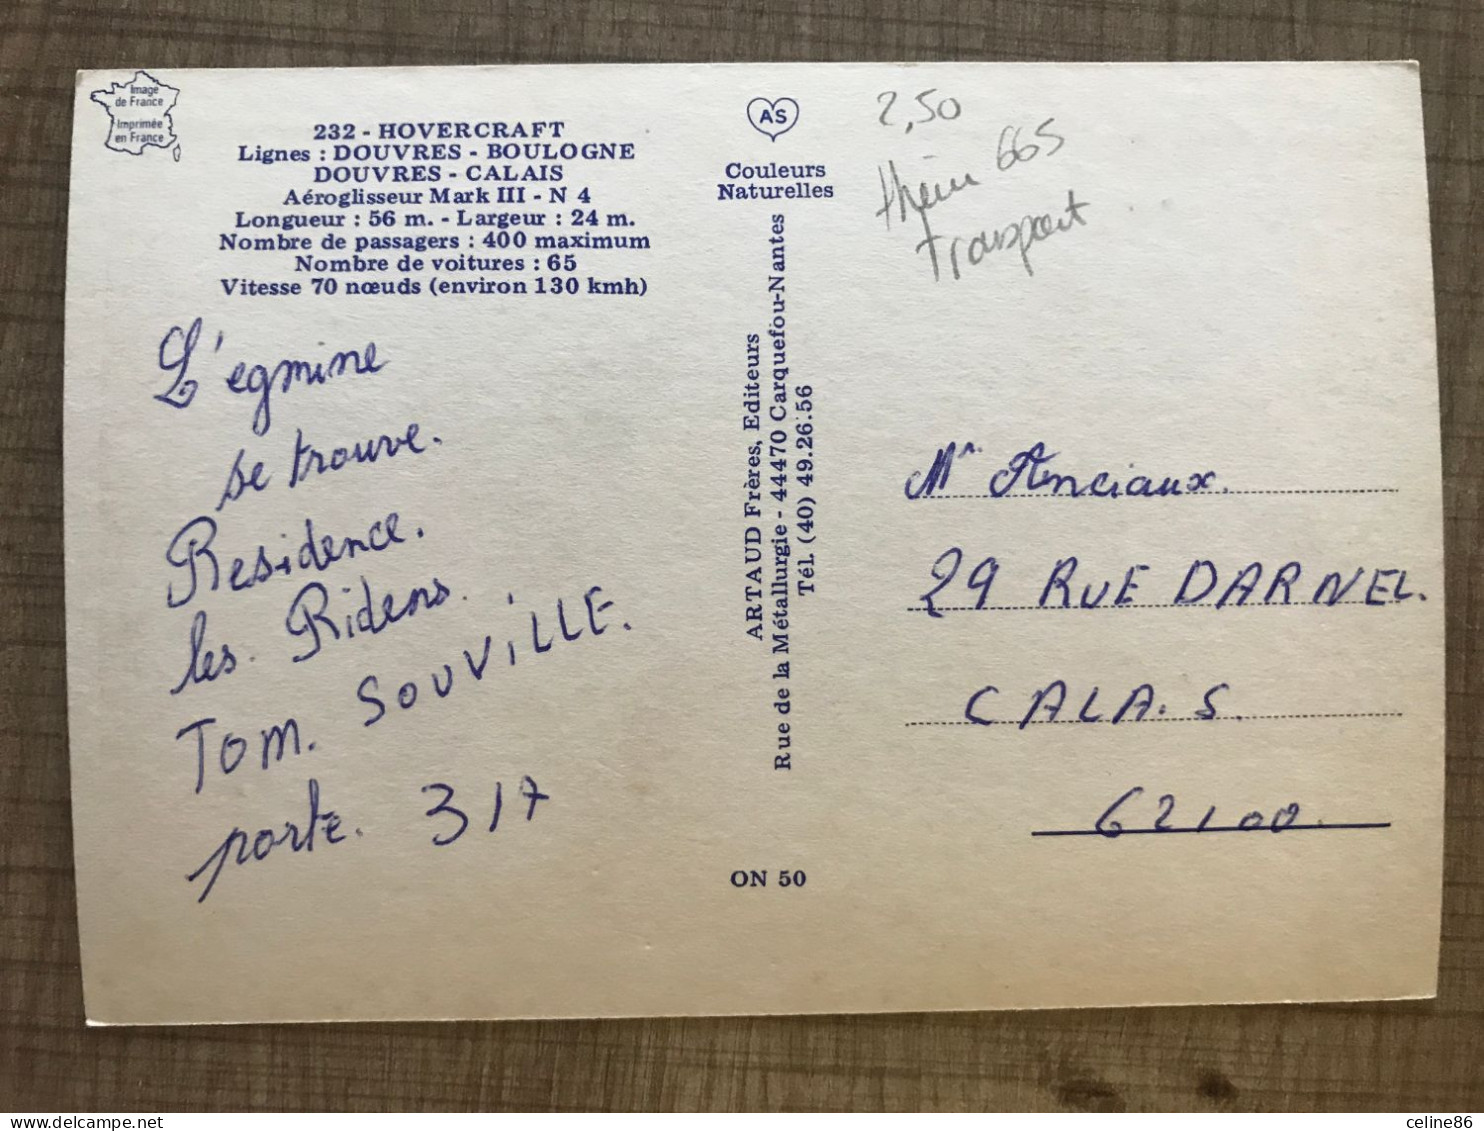 Image
de France
Imprimée
en France
232 - HOVERCRAFT
Lignes : DOUVRES - BOULOGNE
DOUVRES - CALAIS
Aéroglisseur Mark III - N 4
Longueur : 56 m. - Largeur : 24 m.
Nombre de passagers : 400 maximum
Nombre de voitures : 65
Vitesse 70 nœuds (environ 130 kmh)
L'egmine
se trouve.
Residence.
les. Ridens.
Tom. SOUVILLE.
porte. 317
AS
Couleurs
Naturelles
ARTAUD Frères, Editeurs
Rue de la Métallurgie - 44470 Carquefou-Nantes
Tél. (40) 49.26.56
ON 50
2,50
665
transport
Mr Anciaux.
29 RUE DARNEL.
CALAIS.
62100.
delcampe.net
celine86